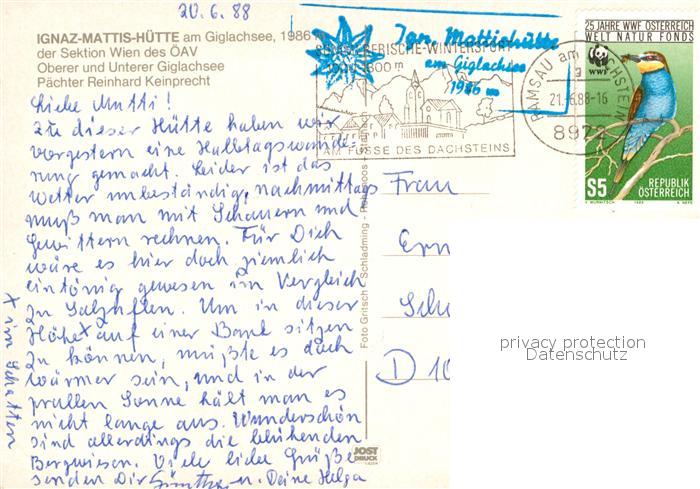 20.6.88
IGNAZ-MATTIS-HÜTTE am Giglachsee, 1986 m
der Sektion Wien des ÖAV
Oberer und Unterer Giglachsee
Pächter Reinhard Keinprecht
Liebe Mutti!
Zu dieser Hütte haben wir
vorgestern eine Halbtagswande-
rung gemacht. Leider ist das
Wetter unbeständig, nachmittags
muß man mit Schauern und
Gewittern rechnen. Für Dich
wäre es hier doch ziemlich
eintönig gewesen im Vergleich
zu Salzuflen. Um in dieser
Höhe x auf einer Bank sitzen
zu können, müßte es doch
wärmer sein, und in der
prallen Sonne hält man es
nicht lange aus. Wunderschön
sind allerdings die blühenden
Bergwiesen. Viele liebe Grüße
senden Dir Günther u. Deine Helga
x im Schatten
Foto Gritsch - Schladming -
JOST
DRUCK
Ign. Mattishütte
am Giglachsee
1986 m
AM FUSSE DES DACHSTEINS
RAMSAU am DACHSTEIN
21.-6.88-16
897
25 JAHRE WWF ÖSTERREICH
WELT NATUR FONDS
WWF
S5
REPUBLIK
ÖSTERREICH
Frau
D 10
privacy protection
Datenschutz